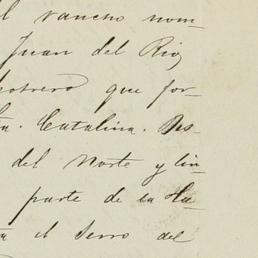 el rancho nom-
Juan del Rio,
potrero que for-
ta. Catalina. Des-
del Norte y lin-
parte de la Ha-
ta el Serro del